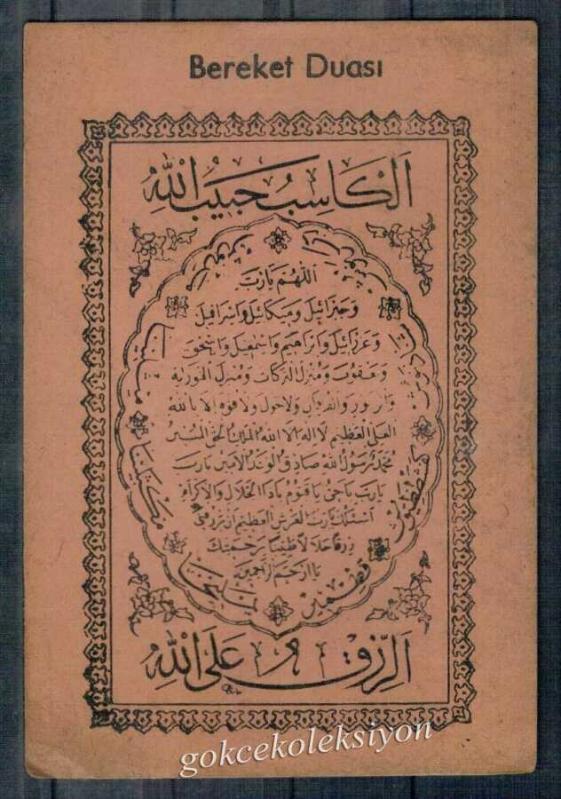 Bereket Duası
الكاسب حبيب الله
اللهم يا رب
و جبرائيل وميكائيل واسرافيل
وعزرائيل وابراهيم واسمعيل واسحق
ويعقوب ومنزل البركات ومنزل التورية
والزبور والفرقان ولا حول ولا قوة الا بالله
العلى العظيم لا اله الا الله الملك الحق المبين
محمد رسول الله صادق الوعد الامين يا رب
يا رب يا حى يا قيوم يا ذا الجلال والاكرام
اسئلك يا رب العرش العظيم ان ترزقنى
رزقا حلالا طيبا برحمتك
يا ارحم الراحمين
مكسلينا
يمليخا
قطمير
الرزق على الله
gokcekoleksiyon